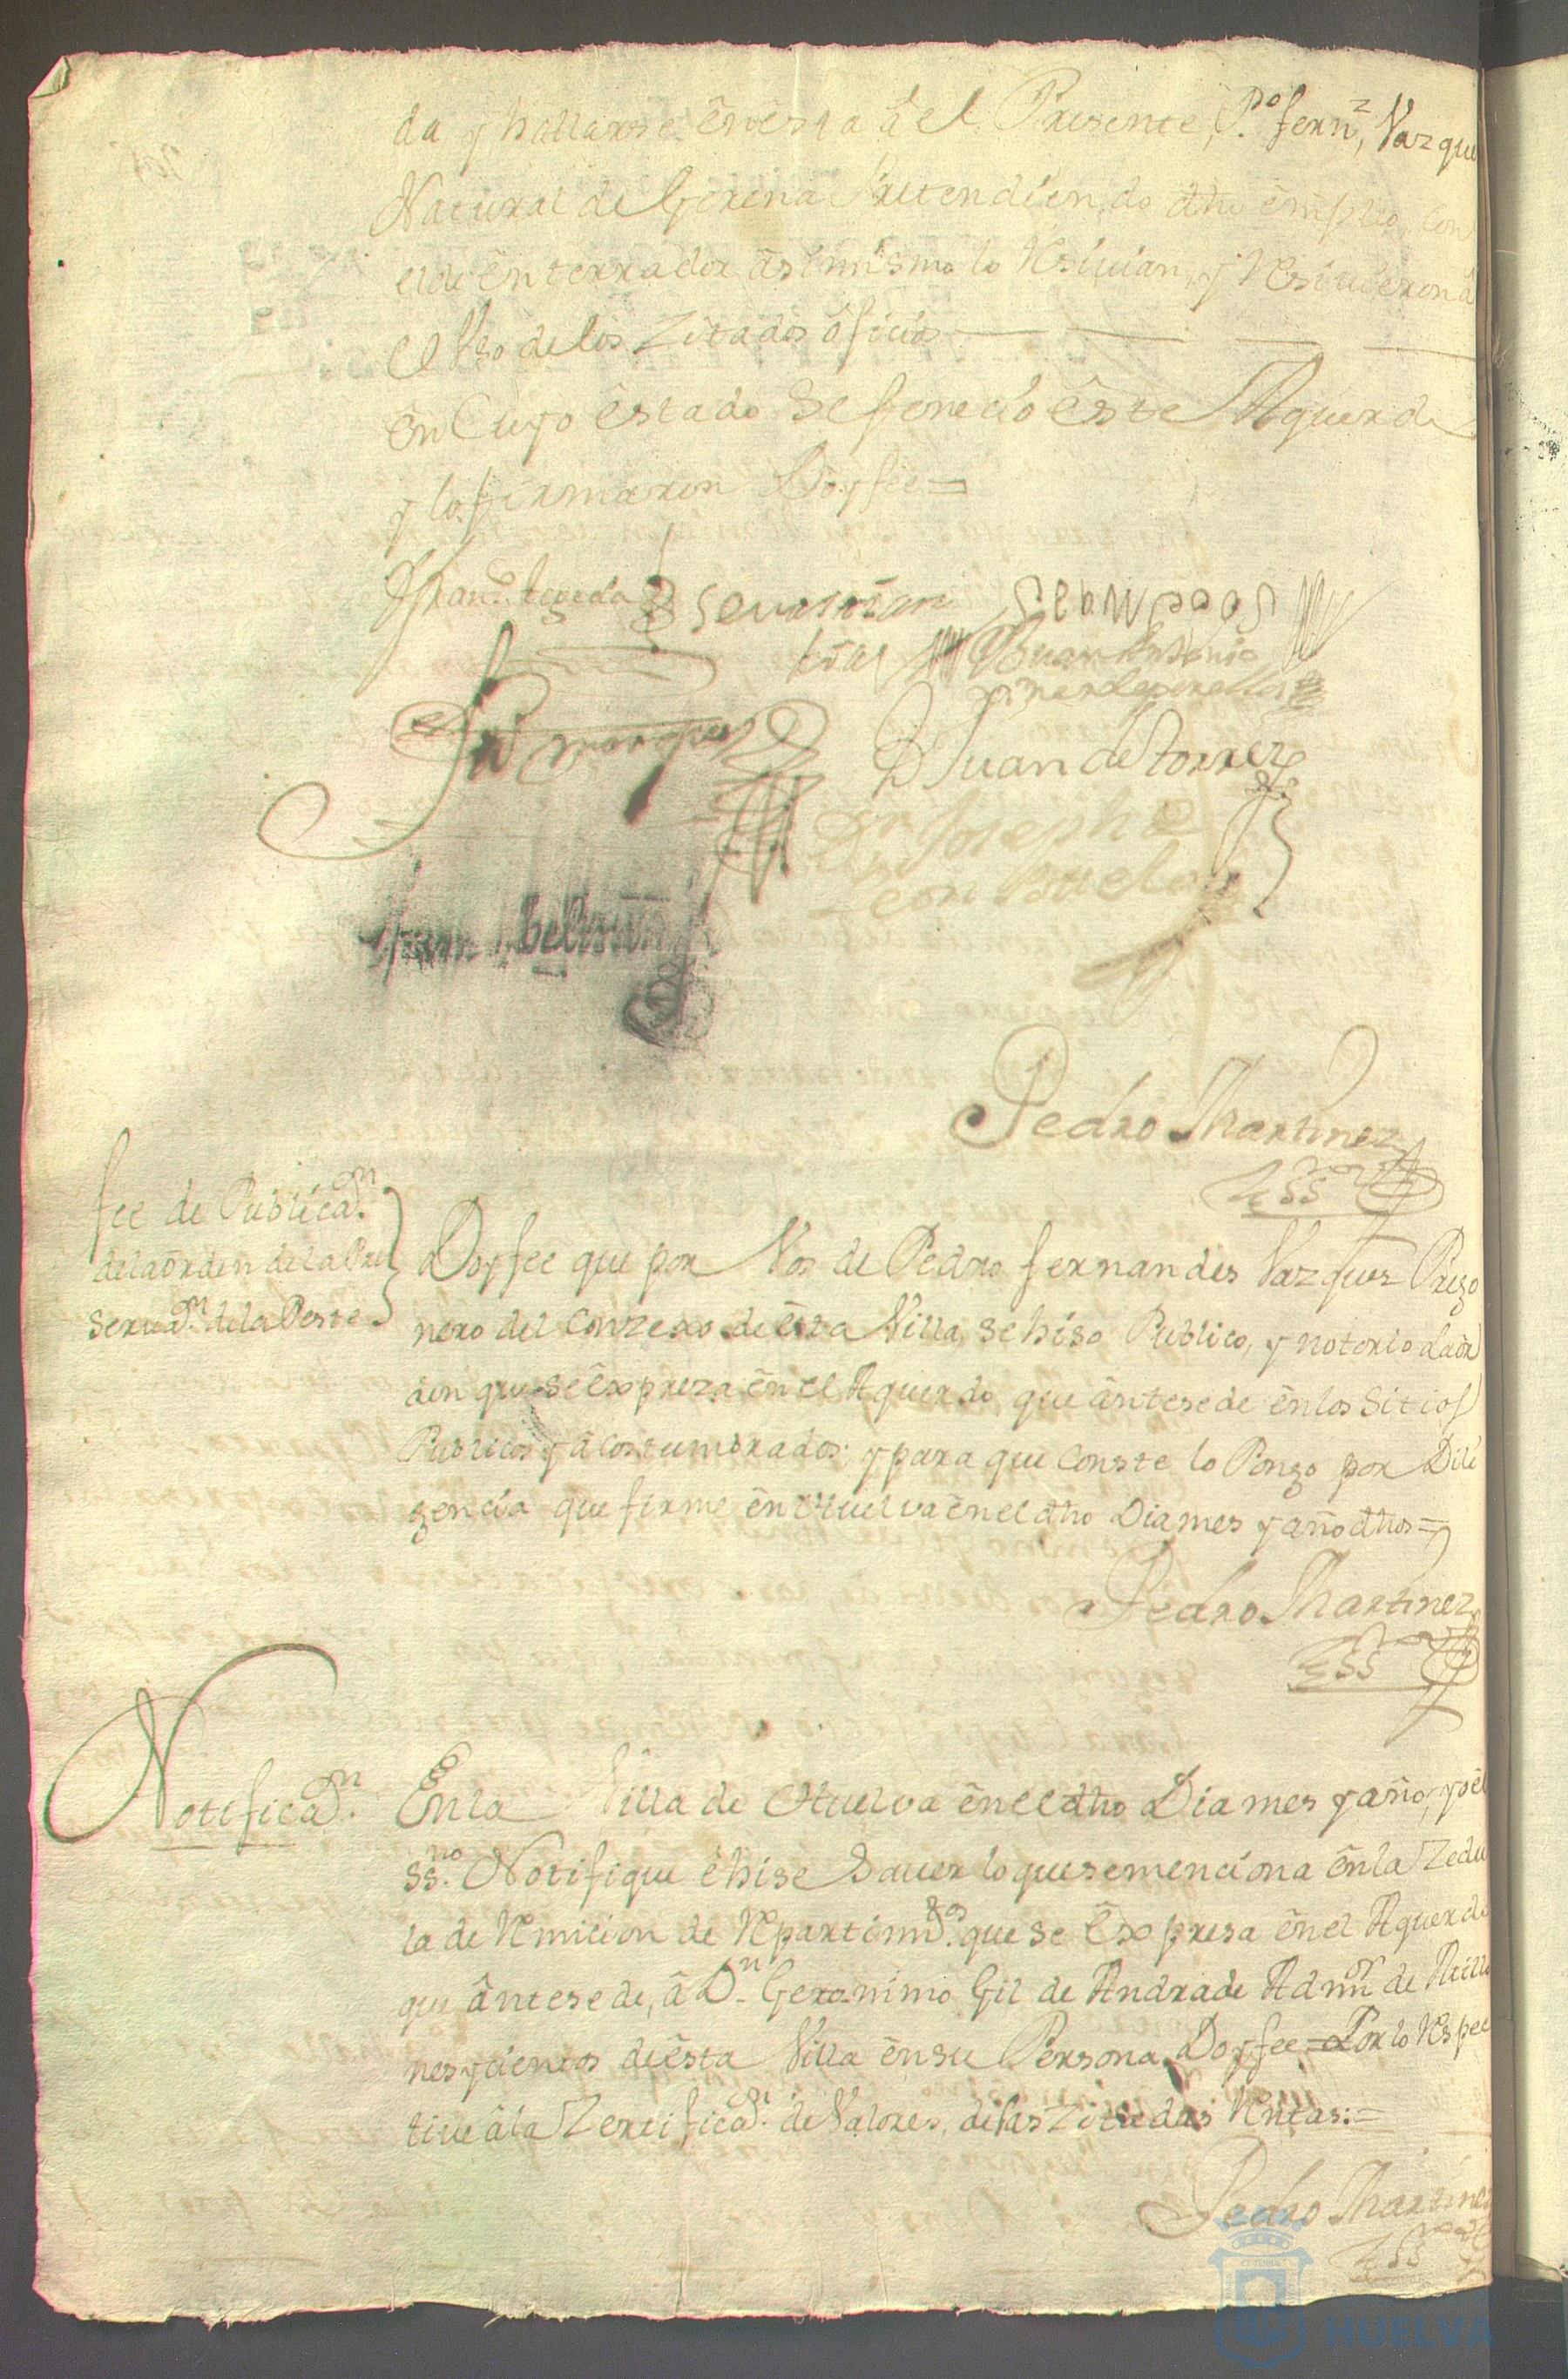 da y hallarse ên êsta â el Presente, P.º fern.z, Vazque
Natural de Gerena Pretendiendo dho êmpleo, con
el de ênterrador âsimismo lo Resiuian, y Resiuieron â
el Vso de los Zitados ôficios
ên Cuyo êstado se feneció êste Aquerdo
y lo firmaron Doy fee =
Fran.co Zepeda Seuastian Jose Maas
Juan Antonio
Ju.o marques D Juan de torres
D.n Josephe
Leon Buelos
Juan beltran
Pedro Martinez
ess.no
fee de Publica.on
de la ôrden de la Pre
serua.on de la Peste
Doy fee que por Vos de Pedro fernandes Vazques Prego
nero del Conzexo de êsta Villa, se hiso Publico, y notorio La ôr
den que se êxpreza ên el Aquerdo que ântesede ên los Sitios
Publicos y âCostumbrados; y para que Conste lo Pongo por Dili
gencia que firme ên Huelva ên el dho Dia mes y año dhos =
Pedro Martinez
ess.no
Notifica.on
En la Villa de Huelva ên el dho Dia mes y año, yo êl
ss.no Notifique ê hise Sauer lo que se menciona ên la Zedu
la de Remicion de Repartim.tos que se êxpresa ên el Aquerdo
que ântesede, â D.n Geronimo Gil de Andrade Adm.or de Millo
nes y cientos de êsta Villa ên su Persona Doy fee = Por lo Respec
tiue â la Zertifica.on de Valores, de las Zitadas Rentas: =
Pedro Martinez
ess.no
HUELVA